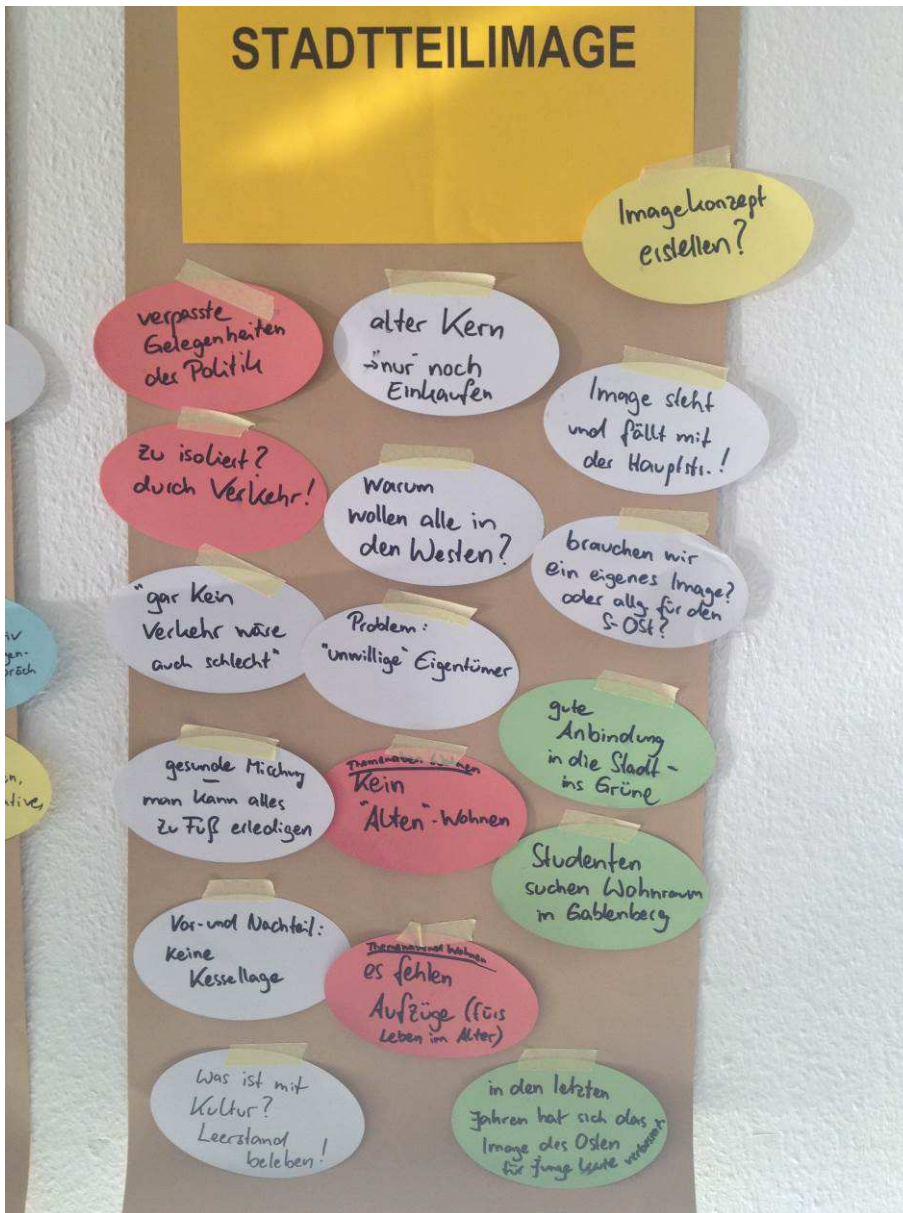 STADTTEILIMAGE
Imagekonzept
erstellen?
verpasste
Gelegenheiten
der Politik
alter Kern
→"nur" noch
Einkaufen
Image steht
und fällt mit
der Hauptstr.!
zu isoliert?
durch Verkehr!
Warum
wollen alle in
den Westen?
brauchen wir
ein eigenes Image?
oder allg. für den
S-Ost?
"gar kein
Verkehr wäre
auch schlecht"
Problem:
"unwillige" Eigentümer
gute
Anbindung
in die Stadt -
ins Grüne
gesunde Mischung
man kann alles
zu Fuß erledigen
Wohnen
Kein
"Alten"-Wohnen
Studenten
suchen Wohnraum
in Gablenberg
Vor- und Nachteil:
keine
Kessellage
Wohnen
es fehlen
Aufzüge (fürs
Leben im Alter)
Was ist mit
Kultur?
Leerstand
beleben!
in den letzten
Jahren hat sich das
Image des Osten
für junge Leute verbessert